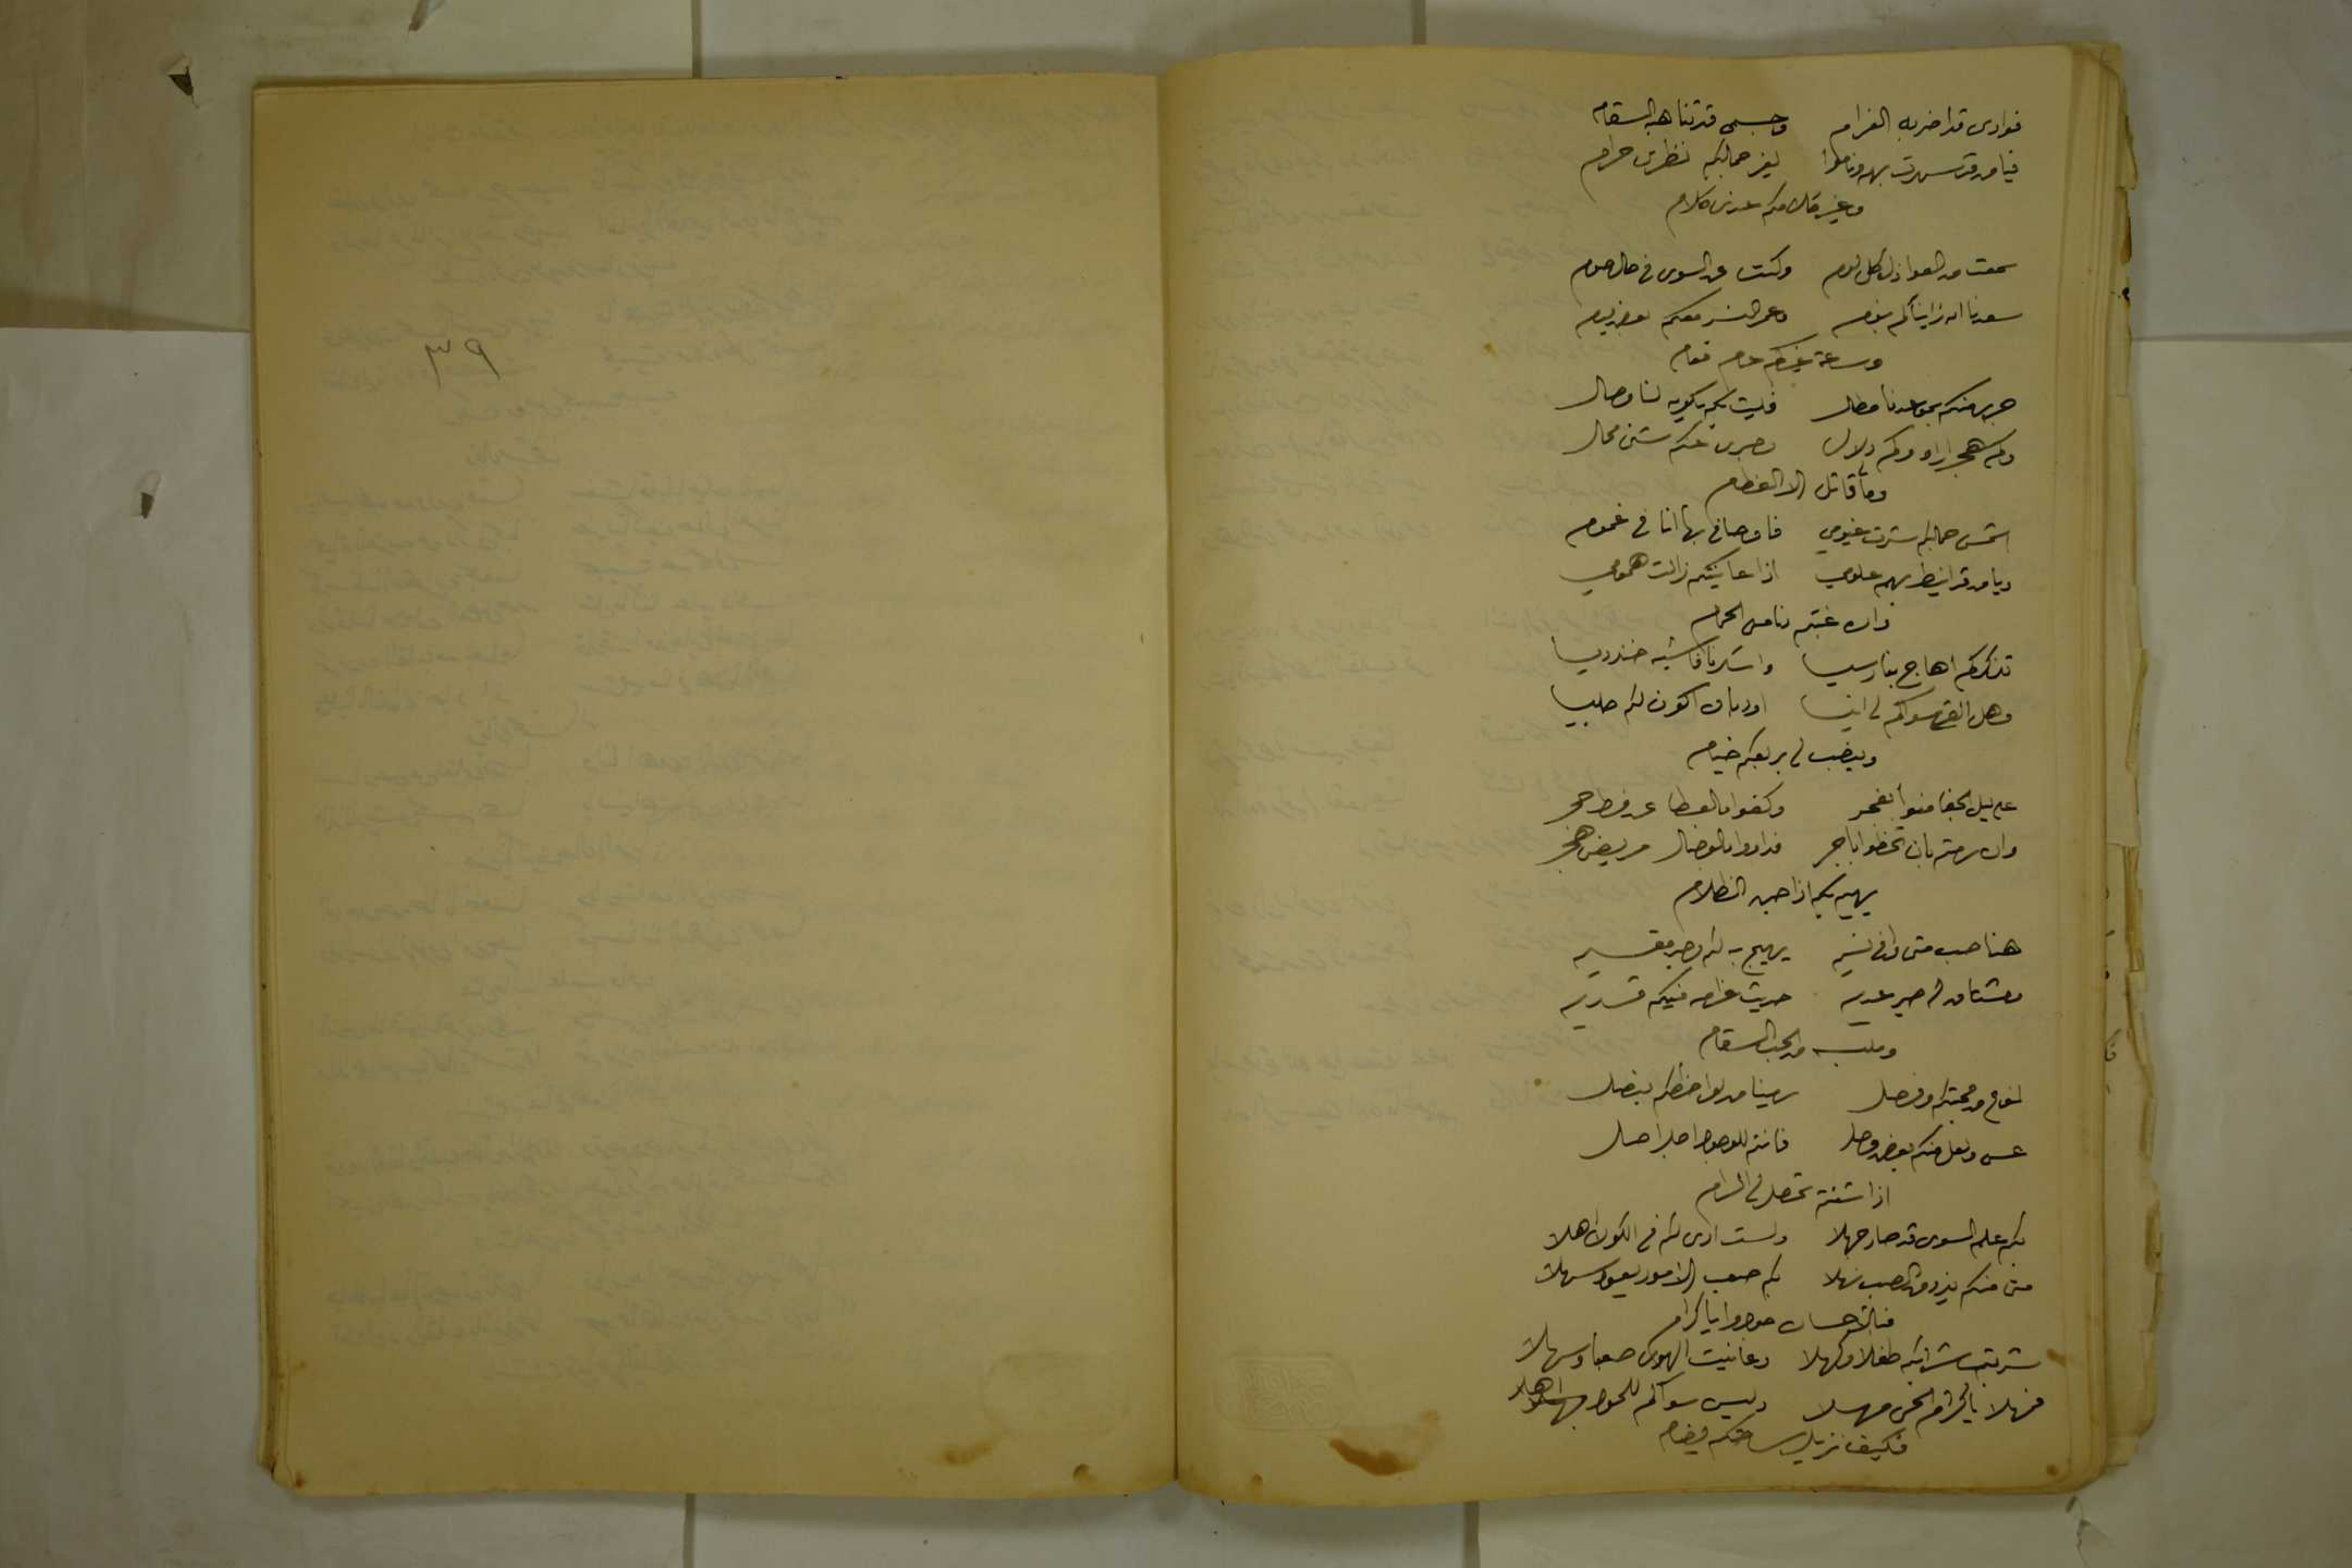 فوادي قد اضر به الغرام وجسمي قد تناهبه السقام
فيا من قد سهرت بهم وناموا لغير جمالكم نظري حرام
وغير كلامكم عندي كلام
سمعت من العواذل كل لوم وكنت عن السوى في حال صوم
بنوم وعمر معكم بعض يوم
وساعة غيركم عام فعام
جرى منكم بموعدنا مطال فليت بكم يكون لنا وصال
وكم هجر اراه وكم دلال وصبري عنكم شيء محال
وما قاتل الا الفطام
اشمس جمالكم سترت غيومي فاوصافي بها انا في غموم
ويا من قد انيط بهم علومي اذا عاينتكم زالت همومي
وان غبتم دنا مني الحمام
تذكركم اهاج بنا رسيسا واسكرنا فاشبه خندريسا
وهل القى سواكم لي انيسا اود بان اكون لكم جليسا
وينصب لي بربعكم خيام
على ليل الجفا منوا بفجر وكفوا بالعطا عن فرط حجر
وان رمتم بان تحظوا باجر فداووا بالوصال مريض هجر
يهيم بكم اذا جن الظلام
هنا صب متى وافى نسيم يهيج به لكم وجد مقيم
ومشتاق له صبر عديم حديث غرامه فيكم قديم
وملبسه من الحب السقام
من محبتكم وفصل رمينا من لواحظكم بنصل
عسى ولعل منكم بعض وصل فانتم للوجود اجل اصل
اذا شئتم تحصل لي المرام
بكم علم السوى قد صار جهلا ولست ارى لكم في الكون اهلا
متى منكم يذوق الصب نهلا بكم صعب الامور يعود سهلا
فبالاحسان جودوا يا كرام
شربت شرابكم طفلا وكهلا وعانيت الهوى صعبا وسهلا
فمهلا يا كرام الحي مهلا وليس سواكم للجود اهلا
فكيف نزيل ساحتكم يضام
٣٩